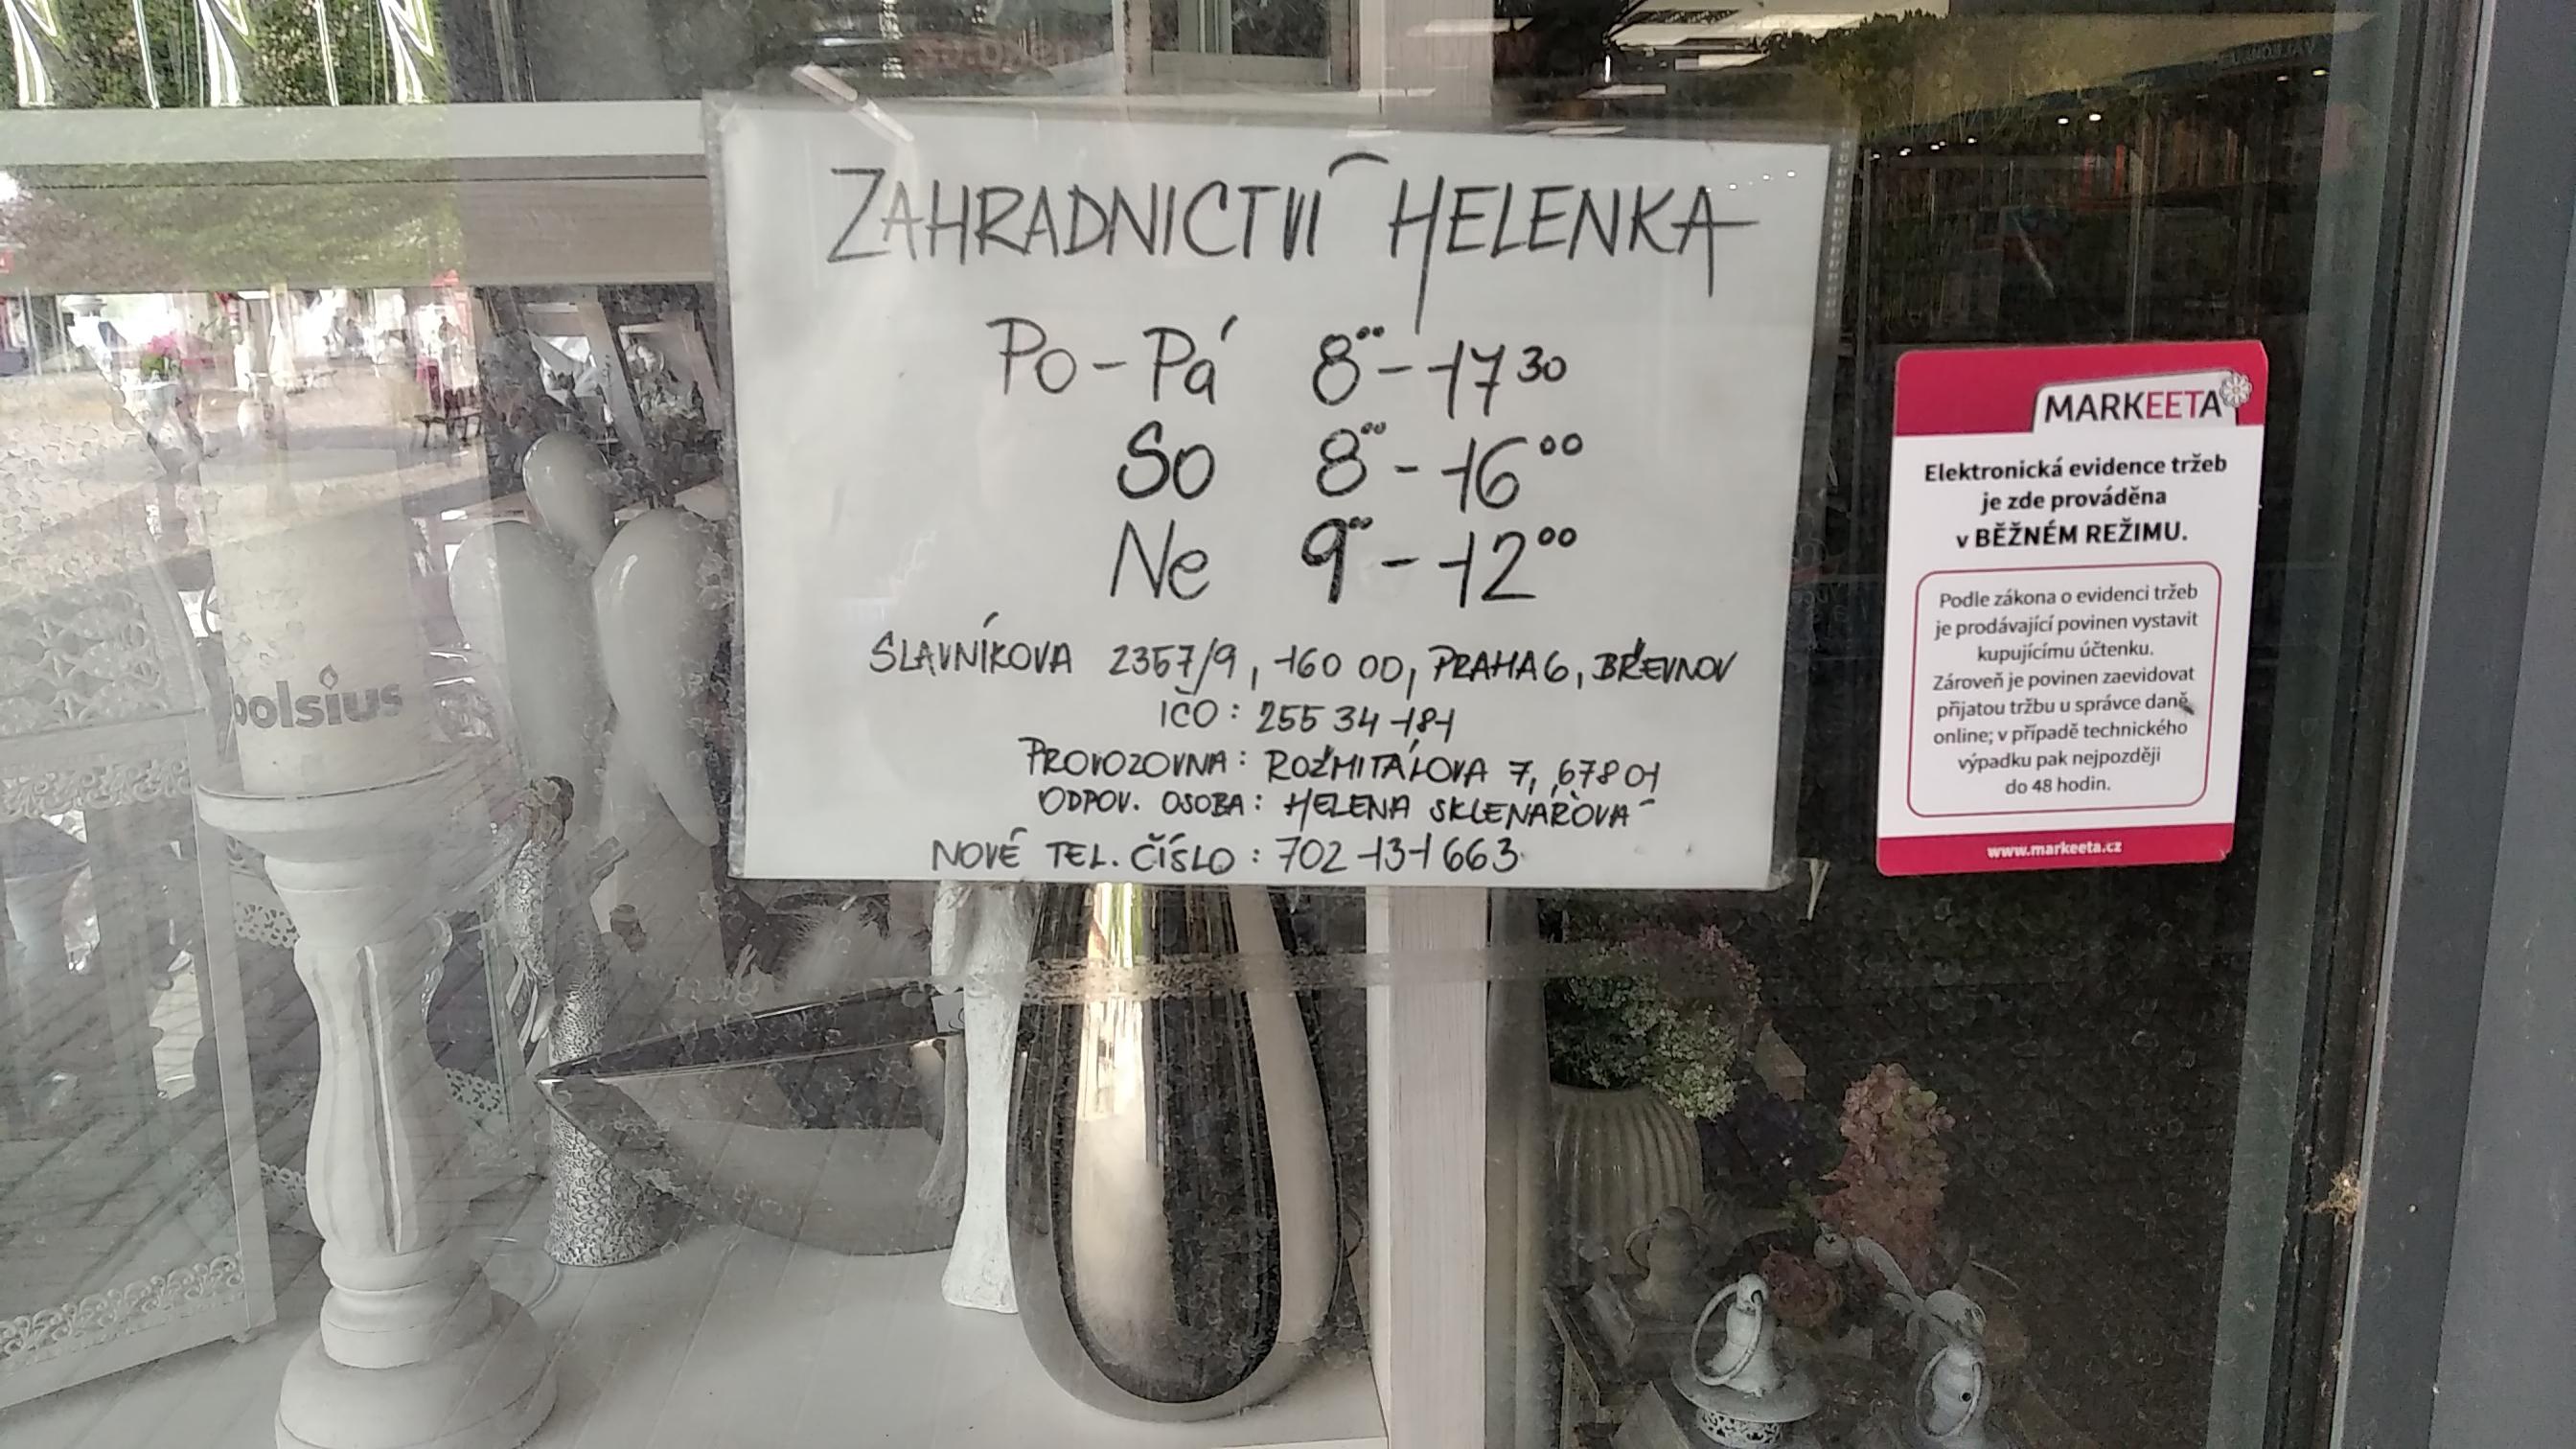 ZAHRADNICTVÍ HELENKA
Po - Pá 8⁰⁰ - 17³⁰
So 8⁰⁰ - 16⁰⁰
Ne 9⁰⁰ - 12⁰⁰
SLAVNÍKOVA 2357/9, 160 00, PRAHA 6, BŘEVNOV
IČO: 255 34 181
PROVOZOVNA: ROŽMITÁLOVA 7, 678 01
ODPOV. OSOBA: HELENA SKLENÁŘOVÁ
NOVÉ TEL. ČÍSLO: 702 131 663
MARKEETA
Elektronická evidence tržeb
je zde prováděna
v BĚŽNÉM REŽIMU.
Podle zákona o evidenci tržeb
je prodávající povinen vystavit
kupujícímu účtenku.
Zároveň je povinen zaevidovat
přijatou tržbu u správce daně
online; v případě technického
výpadku pak nejpozději
do 48 hodin.
www.markeeta.cz
bolsius